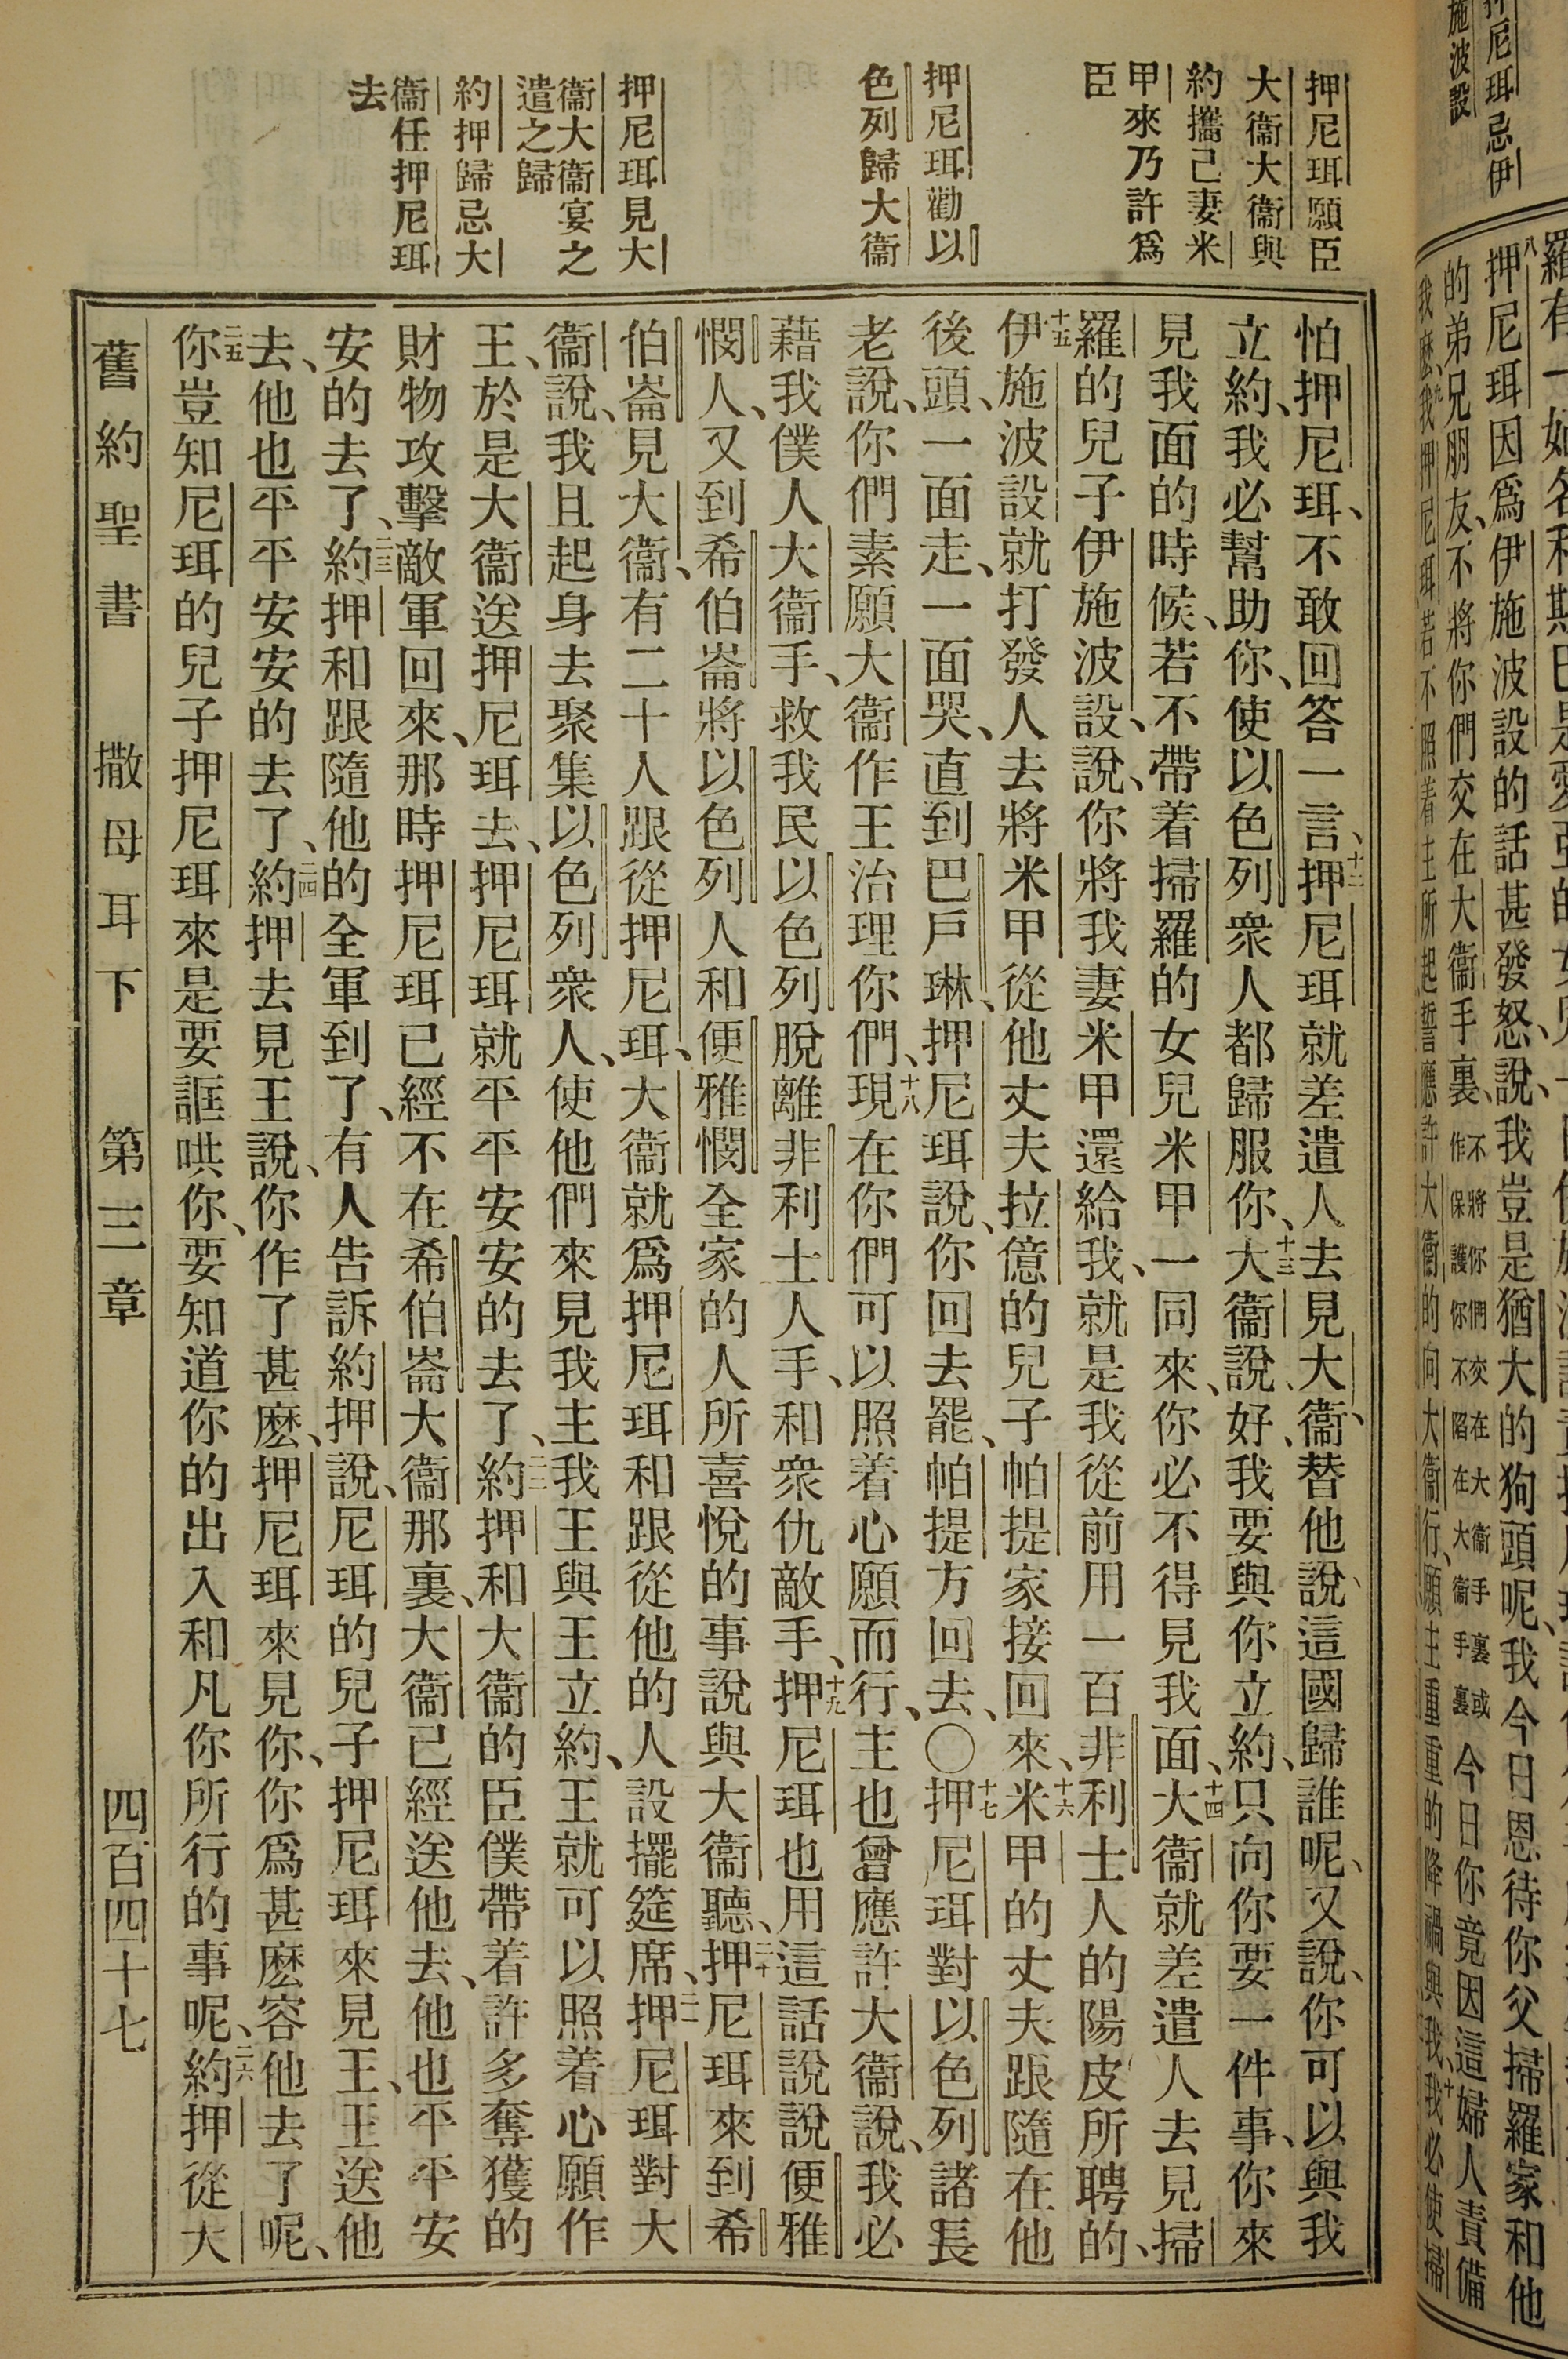 押尼珥忌伊
施波設
八押尼珥因爲伊施波設的話甚發怒、說、我豈是猶大的狗頭呢、我今日恩待你父掃羅家和他
的弟兄朋友、不將你們交在大衞手裏、不將你們交在大衞手裏或作保護你不陷在大衞手裏今日你竟因這婦人責備
我麽、九我押尼珥若不照着主所起誓應許大衞的向大衞行、願主重重的降禍與我、十我必使掃
押尼珥願臣
大衞大衞與
約攜己妻米
甲來乃許爲
臣
押尼珥勸以
色列歸大衞
押尼珥見大
衞大衞宴之
遣之歸
約押歸忌大
衞任押尼珥
去
怕押尼珥、不敢回答一言、十二押尼珥就差遣人去見大衞、替他說、這國歸誰呢、又說、你可以與我
立約、我必幫助你、使以色列衆人都歸服你、十三大衞說、好、我要與你立約、只向你要一件事、你來
見我面的時候、若不帶着掃羅的女兒米甲一同來、你必不得見我面、十四大衞就差遣人去見掃
羅的兒子伊施波設、說、你將我妻米甲還給我、就是我從前用一百非利士人的陽皮所聘的、
十五伊施波設就打發人去將米甲從他丈夫拉億的兒子帕提家接回來、十六米甲的丈夫跟隨在他
後頭、一面走、一面哭、直到巴戶琳、押尼珥說、你回去罷、帕提方回去、〇十七押尼珥對以色列諸長
老說、你們素願大衞作王治理你們、十八現在你們可以照着心願而行、主也曾應許大衞說、我必
藉我僕人大衞手、救我民以色列脫離非利士人手、和衆仇敵手、十九押尼珥也用這話說說便雅
憫人、又到希伯崙將以色列人和便雅憫全家的人所喜悅的事說與大衞聽、二十押尼珥來到希
伯崙見大衞、有二十人跟從押尼珥、大衞就爲押尼珥和跟從他的人設擺筵席、二一押尼珥對大
衞說、我且起身去聚集以色列衆人、使他們來見我主我王與王立約、王就可以照着心願作
王、於是大衞送押尼珥去、押尼珥就平平安安的去了、二二約押和大衞的臣僕帶着許多奪獲的
財物攻擊敵軍回來、那時押尼珥已經不在希伯崙大衞那裏、大衞已經送他去、他也平平安
安的去了、二三約押和跟隨他的全軍到了、有人告訴約押說、尼珥的兒子押尼珥來見王、王送他
去、他也平平安安的去了、二四約押去見王說、你作了甚麽、押尼珥來見你、你爲甚麽容他去了呢、
二五你豈知尼珥的兒子押尼珥來是要誆哄你、要知道你的出入和凡你所行的事呢、二六約押從大
舊約聖書 撒母耳下 第三章 四百四十七